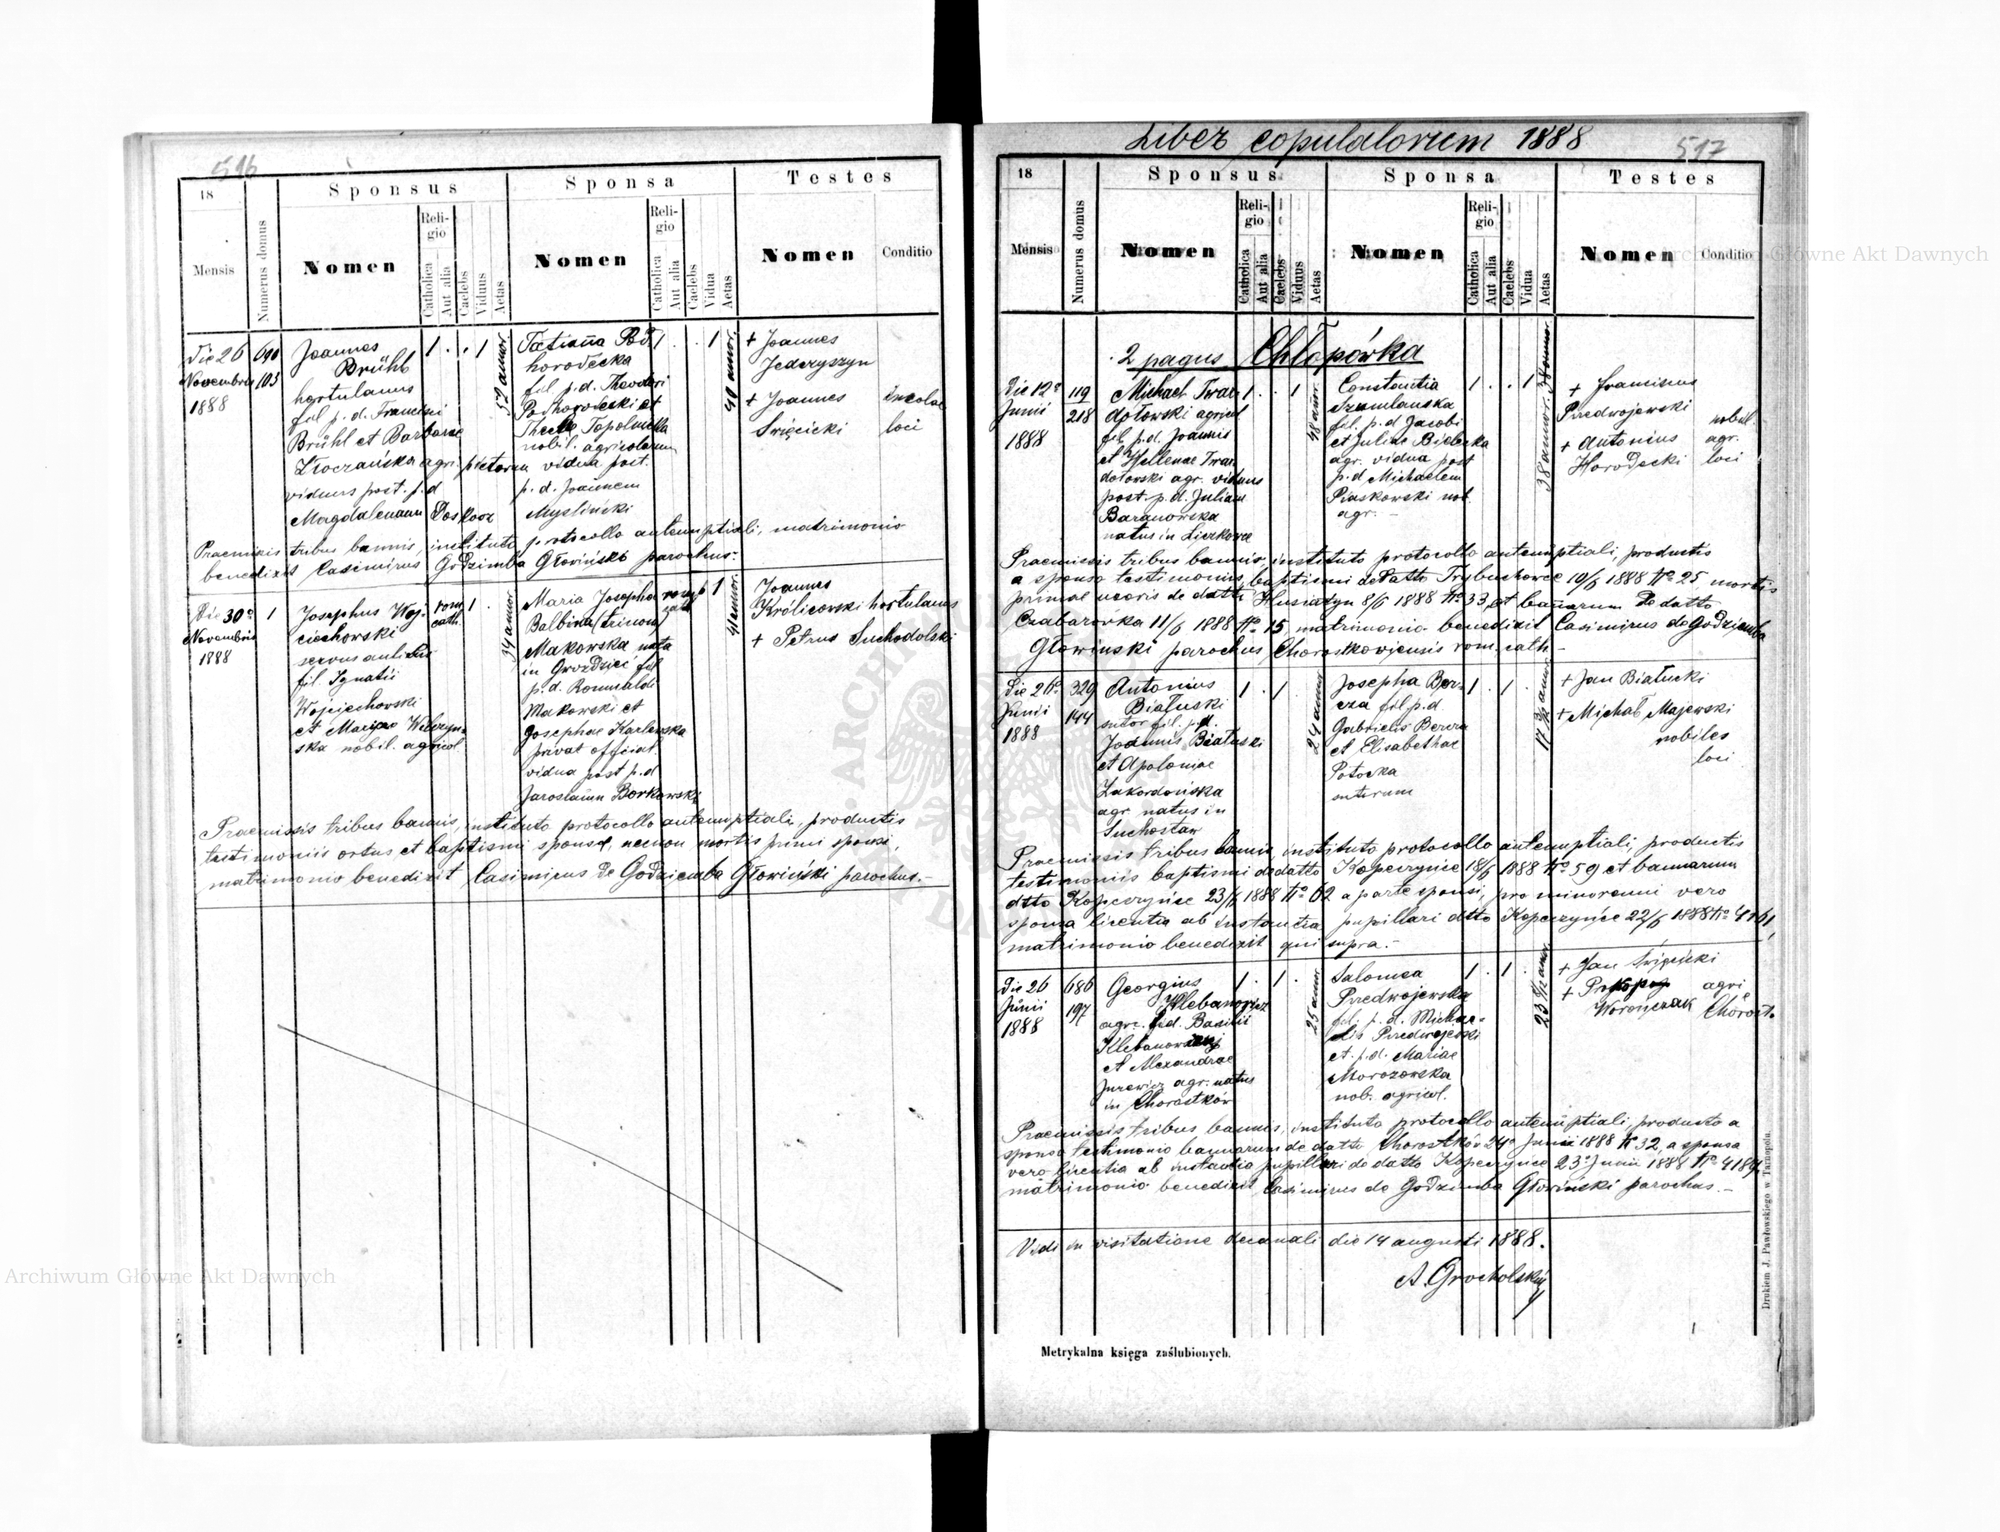 516
18
Sponsus
Sponsa
Testes
Mensis
Numerus domus
Nomen
Religio
Catholica
Aut alia
Caelebs
Viduus
Aetas
Nomen
Religio
Catholica
Aut alia
Caelebs
Vidua
Aetas
Nomen
Conditio
Die 26
Novembris
1888
690
103
Joannes
Brühl
hortulanus
fil p.d. Francisci
Brühl et Barbarae
agri
viduus post. p.d
Magdalenam
1 . . 1
52 annor.
Tatianna Pod
horodecka
fil p.d. Theodori
Podhorodecki et
Theclae Topolnicka
nobil. agricolarum
vidua post.
p.d. Joannem
Mysliński
1 . . 1
40 annor.
+ Joannes
Jedczyszyn
+ Joannes
Święcicki
incolae
loci
Praemissis tribus bannis, instituto protocollo antenuptiali, matrimonio
benedixit Casimirus Godzimba Głowiński parochus.-
Die 30a
Novembris
1888
1
Josephus Woj-
ciechowski
servus
fil. Ignatii
Wojciechowski
et Mariae Wilczyn-
ska nobil. agricol
rom.
cath.
1 .
34 annor
Maria Josepha
Balbina (trinom)
Makowska nata
in Gwoździec fil
p.d. Romualdi
Makowski et
Josephae Karlewska
privat official.
vidua post p.d
Jaroslaum Borkowski
1
41 annor.
Joannes
Królikowski hortulanus
+ Petrus Suchodolski
Praemissis tribus bannis, instituto protocollo antenuptiali, productis
testimoniis ortus et baptismi sponsa, necnon mortis primi sponsi,
matrimonio benedixit Casimirus de Godziemba Głowiński parochus.-
Liber copulatorum 1888
517
18
Sponsus
Sponsa
Testes
Mensis
Numerus domus
Nomen
Religio
Catholica
Aut alia
Caelebs
Viduus
Aetas
Nomen
Religio
Catholica
Aut alia
Caelebs
Vidua
Aetas
Nomen
Conditio
2 pagus Chłopówka
Die 12a
Junii
1888
119
218
Michael Twar-
dołowski agricol
fil. p.d. Joannis
et Hellenae Twar-
dołowski agr. viduus
post. p.d. Juliam
Baranowska
natus in Liczkowce
1 . . 1
48 annor.
Constantia
Szumlanska
fil. p.d Jacobi
et Juliae Bielecka
agr. vidua post
p.d Michaelem
Piaskowski nob.
agr. -
1 . . 1
38 annor.
38 annor.
+ Franciscus
Przedwojewski
+ Antonius
Horodecki
nobil.
agr.
loci
Praemissis tribus bannis, instituto protocollo antenuptiali, productis
a sponso testimoniis baptismi de datto Trybuchowce 10/6 1888 No 25 mortis
primae uxoris de datto Husiatyn 8/6 1888 No 33, et bannarum de datto
Czabarówka 11/6 1888 No 15, matrimonio benedixit Casimirus de Godziemba
Głowinski parochus Chorostkoviensis rom. cath -
Junii
1888
329
144
Antonius
Białuski
sutor fil. p.d.
Joannis Białuski
et Apoloniae
Zakordońska
agr. natus in
Suchostaw
1 . 1
24 annor
Josepha Ber-
cza fil. p.d.
Gabrielis Bereza
et Elisabethae
Potocka
sutorum
1 . 1
+ Jan Białucki
+ Michał Majewski
nobiles
loci
Praemissis tribus bannis, instituto protocollo antenuptiali, productis
testimoniis baptismi de datto Kopeczyńce 18/6 1888 No 59 et bannarum
dtto Kopeczyńce 23/6 1888 No 62 a parte sponsi, pro minorenni vero
sponsa licentia ab instantia pupillari dtto Kopeczyńce 22/6 1888 No
matrimonio benedixit qui supra.-
Die 26
Junii
1888
686
197
Georgius
Klebanowicz
agr. fil. Basilii
et Alexandrae
Jurewicz agr. natus
in Chorostków
1 . 1 .
25 annor
Salomea
Przedwojewska
fil. p.d. Micha-
elis Przedwojewski
et p.d. Mariae
Morozowska
nob. agricol.
1 . 1 .
+ Jan Święcicki
+ Prokop
Worończak
agri
Chorost.
Praemissis tribus bannis, instituto protocollo antenuptiali, producto a
sponso testimonio bannarum de datto Chorostków 24a Junii 1888 No 32, a sponsa
vero licentia ab instantia pupillari de datto Kopeczyńce 23a Junii 1888 No
matrimonio benedixit Casimirus de Godzimba Głowiński parochus.-
Vidi in visitatione decanali die 14 augusti 1888.
A. Grocholski
Metrykalna księga zaślubionych.
Drukiem J. Pawłowskiego w Tarnopolu.
Archiwum Główne Akt Dawnych
Archiwum Główne Akt Dawnych